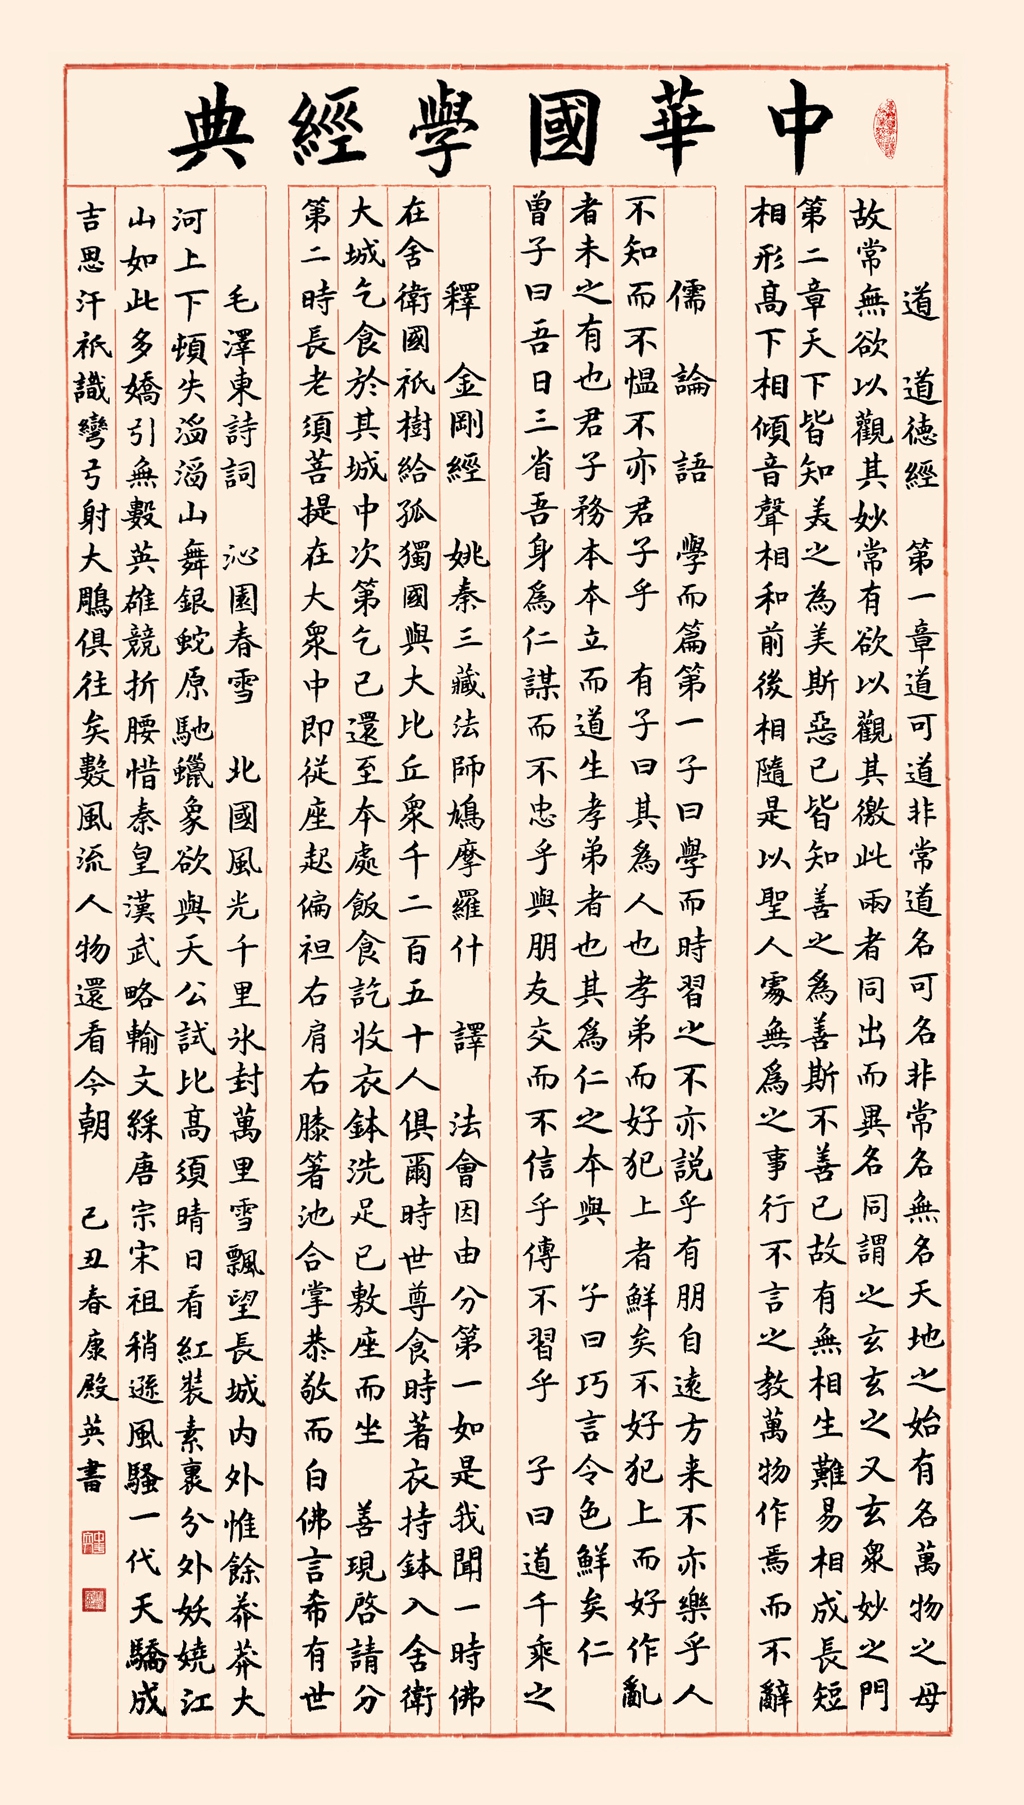 中華國學經典
道 道德經 第一章道可道非常道名可名非常名無名天地之始有名萬物之母
故常無欲以觀其妙常有欲以觀其徼此兩者同出而異名同謂之玄玄之又玄衆妙之門
第二章天下皆知美之為美斯惡已皆知善之為善斯不善已故有無相生難易相成長短
相形高下相傾音聲相和前後相隨是以聖人處無為之事行不言之教萬物作焉而不辭
儒 論 語 學而篇第一子曰學而時習之不亦説乎有朋自遠方来不亦樂乎人
不知而不愠不亦君子乎 有子曰其為人也孝弟而好犯上者鮮矣不好犯上而好作亂
者未之有也君子務本本立而道生孝弟者也其為仁之本與 子曰巧言令色鮮矣仁
曾子曰吾日三省吾身為仁謀而不忠乎與朋友交而不信乎傳不習乎 子曰道千乘之
釋 金剛經 姚秦三藏法師鳩摩羅什 譯 法會因由分第一如是我聞一時佛
在舍衛國祇樹給孤獨國與大比丘衆千二百五十人俱爾時世尊食時著衣持鉢入舍衛
大城乞食於其城中次第乞已還至本處飯食訖收衣鉢洗足已敷座而坐 善現啓請分
第二時長老須菩提在大衆中即從座起偏袒右肩右膝箸池合掌恭敬而白佛言希有世
毛澤東詩詞 沁園春雪 北國風光千里氷封萬里雪飄望長城内外惟餘莽莽大
河上下頓失滔滔山舞銀蛇原馳蠟象欲與天公試比高須晴日看紅裝素裹分外妖嬈江
山如此多嬌引無數英雄競折腰惜秦皇漢武略輸文綵唐宗宋祖稍遜風騷一代天驕成
吉思汗祇識彎弓射大鵰俱往矣數風流人物還看今朝 己丑春康殿英書